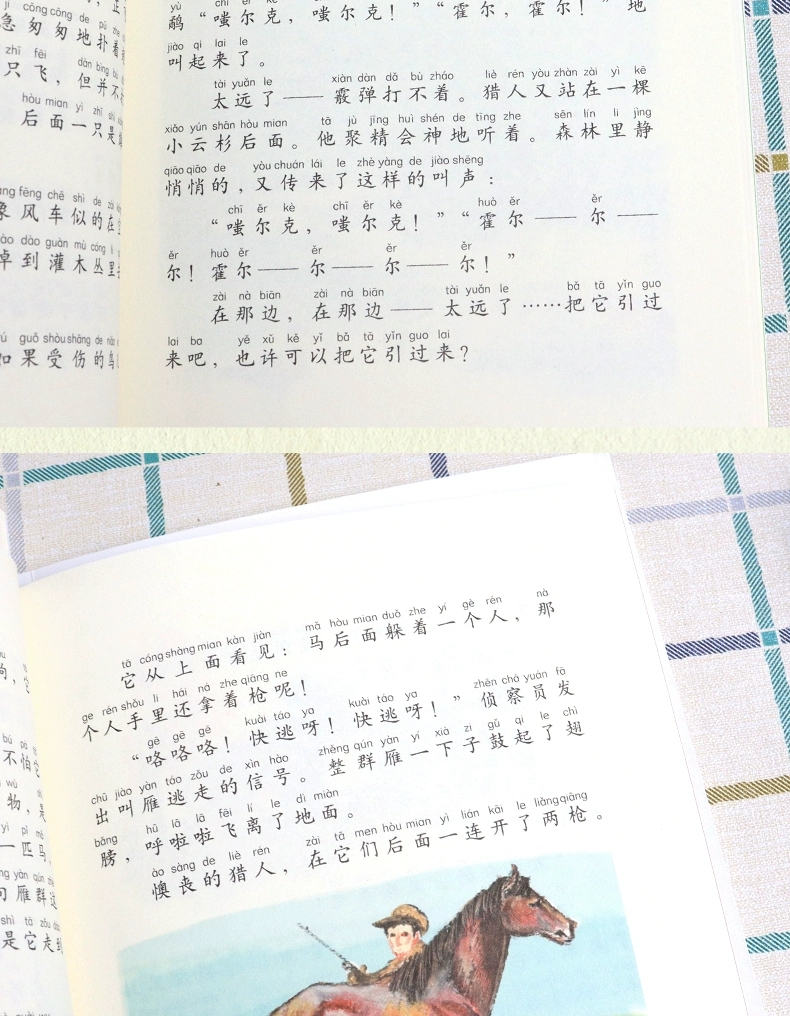 yù chī ěr kè
鹉“嗤尔克，嗤尔克！”“霍尔，霍尔！”地
jiào qi lai le
叫起来了。
tài yuǎn le xiàn dàn dǎ bù zháo liè rén yòu zhàn zài yì kē
太远了——霰弹打不着。猎人又站在一棵
xiǎo yún shān hòu mian tā jù jīng huì shén de tīng zhe sēn lín li jìng
小云杉后面。他聚精会神地听着。森林里静
qiāo qiāo de yòu chuán lái le zhè yàng de jiào shēng
悄悄的，又传来了这样的叫声：
chī ěr kè chī ěr kè huò ěr ěr
“嗤尔克，嗤尔克！”“霍尔——尔——
ěr huò ěr ěr ěr ěr
尔！霍尔——尔——尔——尔！”
zài nà biān zài nà biān tài yuǎn le bǎ tā yǐn guo
在那边，在那边——太远了……把它引过
lai ba yě xǔ kě yǐ bǎ tā yǐn guo lai
来吧，也许可以把它引过来？
jí cōng cōng de pū
急匆匆地扑着
zhī fēi dàn bìng bù
只飞，但并不
hòu mian yì zhī shì
后面一只是
fēng chē shì de zài
象风车似的在
dào guàn mù cóng li
掉到灌木丛里
guǒ shòu shāng de niǎo
如果受伤的鸟
tā cóng shàng mian kàn jiàn mǎ hòu mian duǒ zhe yí gè rén nà
它从上面看见：马后面躲着一个人，那
ge rén shǒu li hái ná zhe qiāng ne
个人手里还拿着枪呢！
gē gē gē kuài táo ya kuài táo ya zhēn chá yuán fā
“咯咯咯！快逃呀！快逃呀！”侦察员发
chū jiào yàn táo zǒu de xìn hào zhěng qún yàn yí xià zi gǔ qi le chì
出叫雁逃走的信号。整群雁一下子鼓起了翅
bǎng hū lā lā fēi lí le dì miàn
膀，呼啦啦飞离了地面。
ào sàng de liè rén zài tā men hòu mian yì lián kāi le liǎng qiāng
懊丧的猎人，在它们后面一连开了两枪。
狗，它
bú pà tā
不怕它
wù shì
物，是
yì pǐ mǎ
一匹马，
yàn qún
向雁群这
shì tā zǒu dào
是它走到